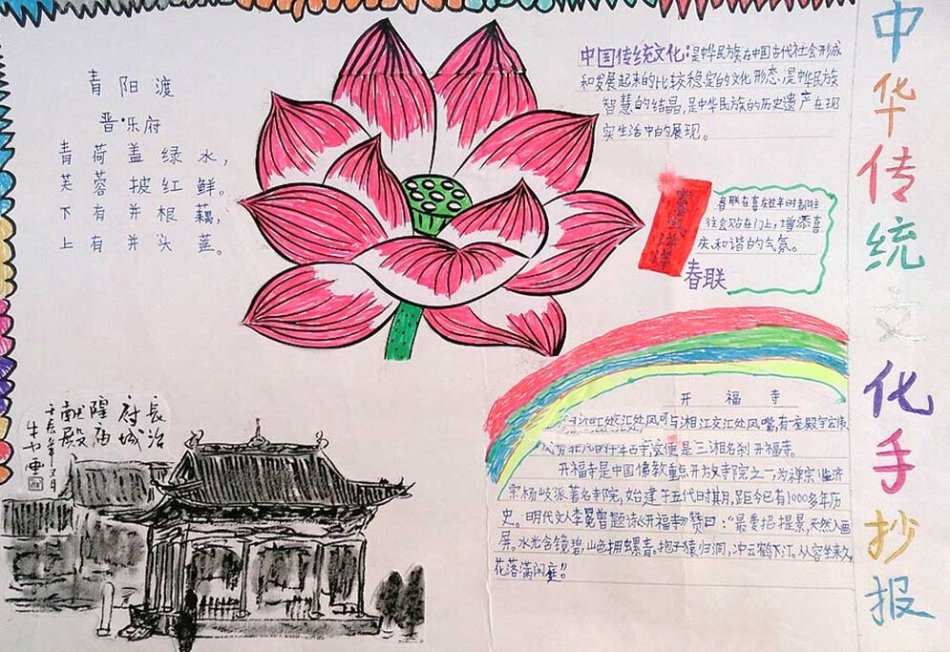 中华传统文化手抄报
青阳渡
晋·乐府
青荷盖绿水，
芙蓉披红鲜。
下有并根藕，
上有并头莲。
中国传统文化：是中华民族在中国古代社会形成
和发展起来的比较稳定的文化形态，是中华民族
智慧的结晶，是中华民族的历史遗产在现
实生活中的展现。
春联在喜庆过年时都贴
往会贴在门上，增添喜
庆、和谐的气氛。
春联
开福寺
与湘江交汇处风嘴，有座殿宇宏伟
便是三湘名刹开福寺。
开福寺是中国佛教重点开放寺院之一，为禅宗临济
宗杨岐派著名寺院，始建于五代时期，距今已有1000多年历
史。明代文人李冕曾题诗《开福寺》赞曰："最爱招提景，天然入画
屏。水光含镜碧，山色拥螺青。抱子猿归洞，冲云鹤下汀。从容坐来久，
花落满闲庭！"
长治
府城
隍庙
献殿